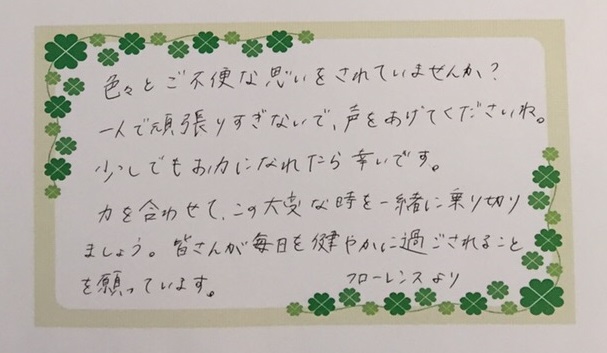 色々とご不便な思いをされていませんか?
一人で頑張りすぎないで、声をあげてくださいね。
少しでもお力になれたら幸いです。
力を合わせて、この大変な時を一緒に乗り切り
ましょう。皆さんが毎日を健やかに過ごされること
を願っています。 フローレンスより